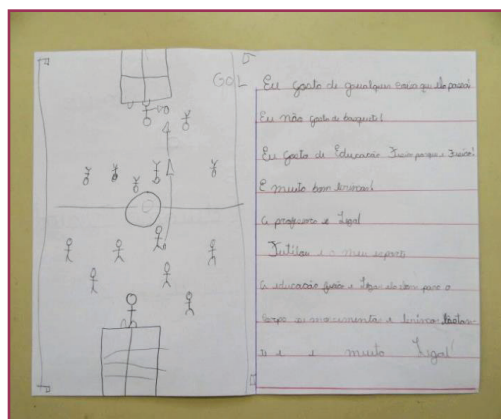 GOL
Eu gosto de qualquer coisa que
Eu não gosto de basquete!
Eu gosto de Educação Física porque é
É muito bom brincar!
O professor é legal
Futibou é o meu esporte
A educação física é legal ela bom para o
corpo se movimenta e brincar
é muito legal!